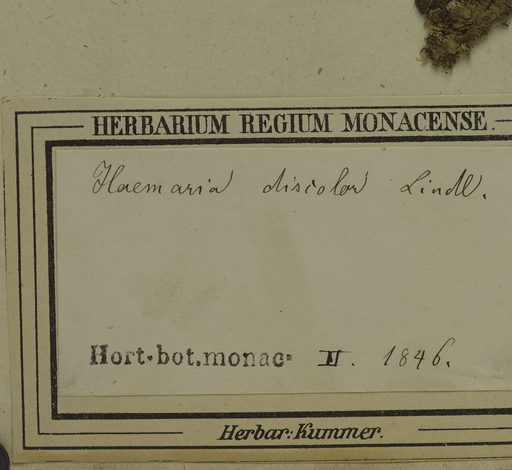 HERBARIUM REGIUM MONACENSE.
Haemaria discolor Lindl.
Hort.bot.monac. II. 1846.
Herbar: Kummer.